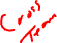 Cross
Team